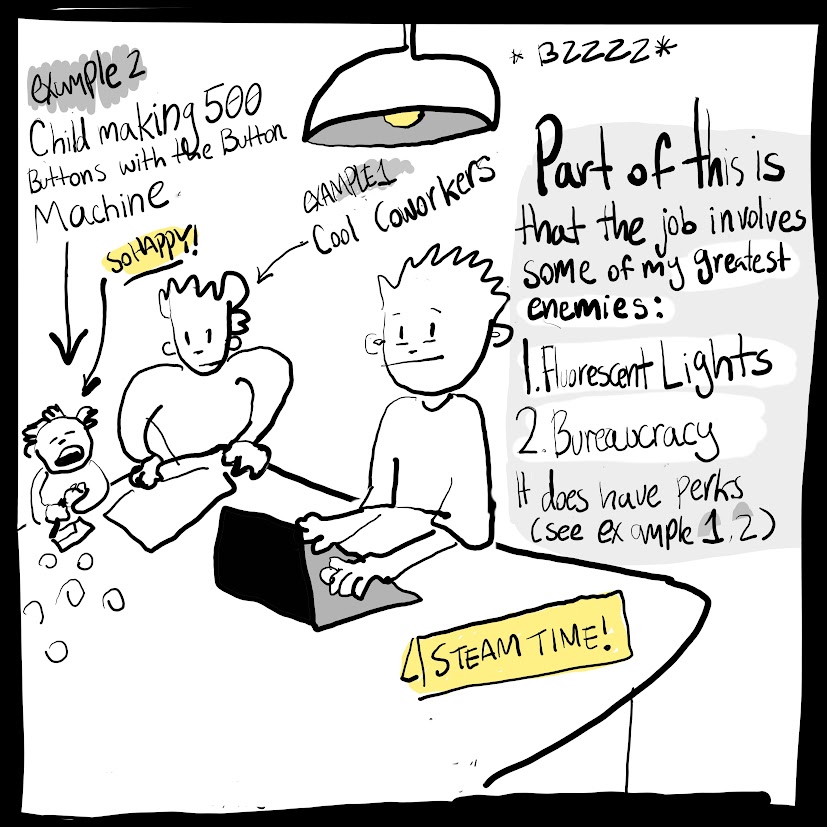 example 2
Child making 500
Buttons with the Button
Machine
SO HAPPY!
EXAMPLE 1
Cool Coworkers
* BZZZZ *
Part of this is
that the job involves
some of my greatest
enemies:
1. Fluorescent Lights
2. Bureaucracy
It does have perks
(see example 1, 2)
STEAM TIME!